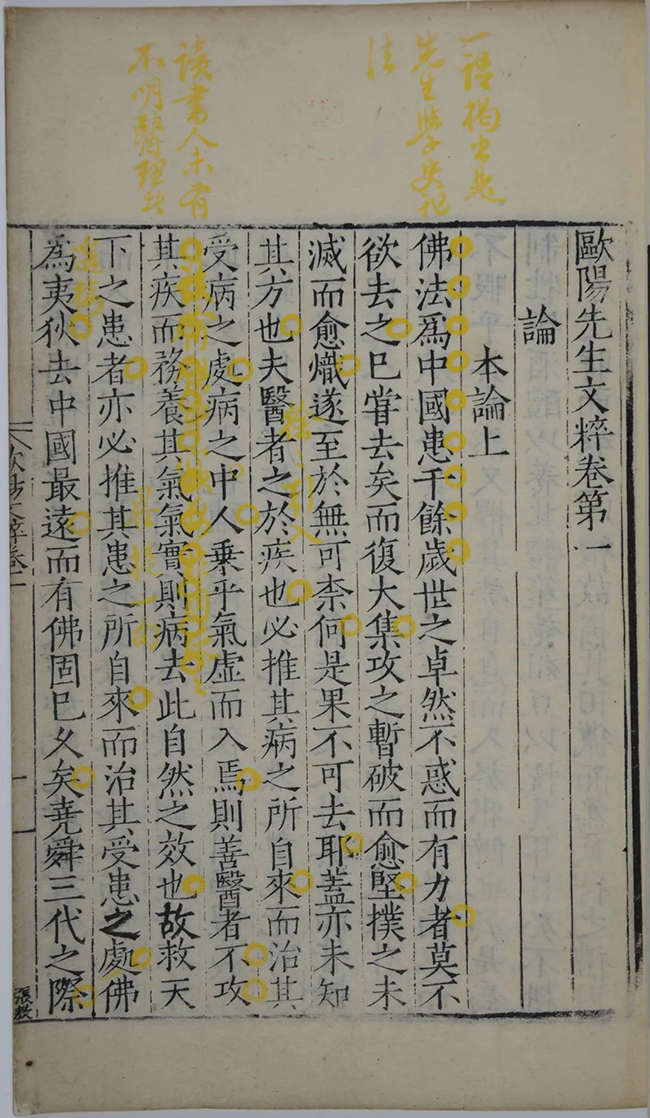 一語揭出是
先生學史記
法
讀書人未有
不明醫理者
歐陽先生文粹卷第一
論
本論上
佛法爲中國患千餘歲世之卓然不惑而有力者莫不
欲去之巳甞去矣而復大集攻之暫破而愈堅撲之未
滅而愈熾遂至於無可柰何是果不可去耶蓋亦未知
其方也夫醫者之於疾也必推其病之所自來而治其
受病之處病之中人乗乎氣虛而入焉則善醫者不攻
其疾而務養其氣氣實則病去此自然之效也故救天
下之患者亦必推其患之所自來而治其受患之處佛
為夷狄去中國最遠而有佛固巳久矣堯舜三代之際